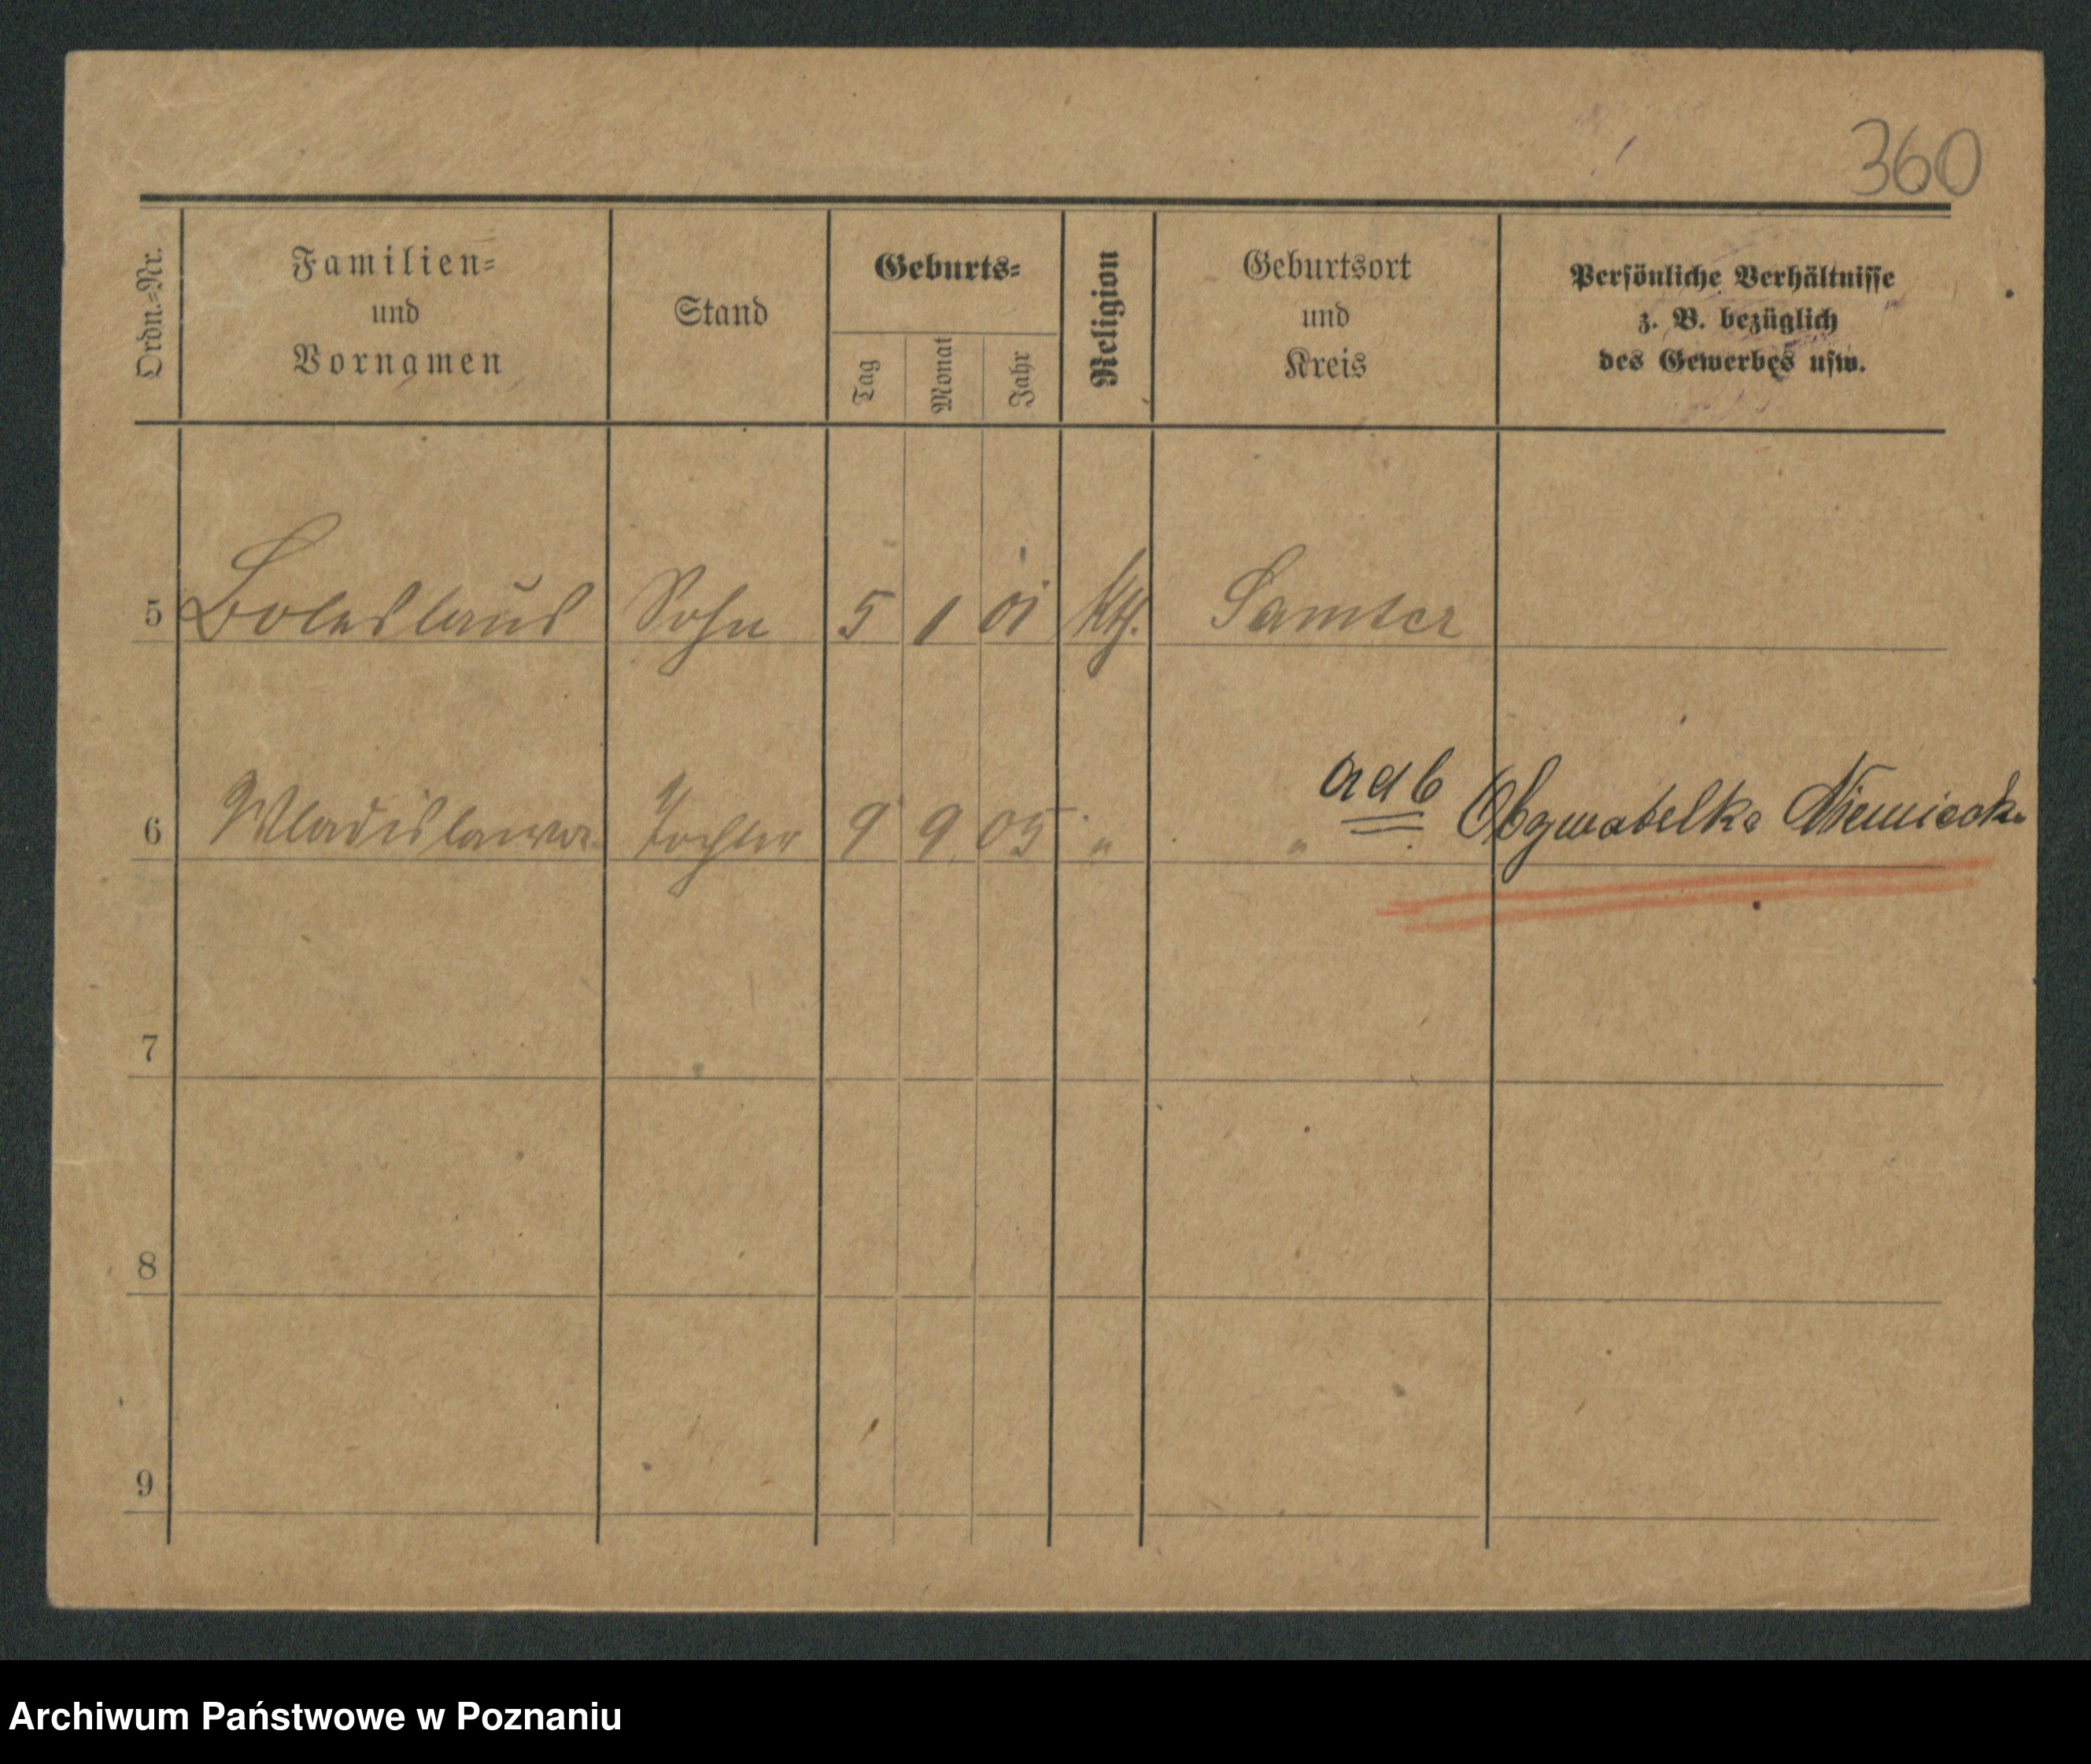 360
Ordn.-Nr.
Familien-
und
Vornamen
Stand
Geburts-
Tag
Monat
Jahr
Religion
Geburtsort
und
Kreis
Persönliche Verhältnisse
z. B. bezüglich
des Gewerbes usw.
5 Boleslaus Sohn 5 1 01 kth. Samter
6 Wladislawa Tochter 9 9 05 " " ad 6 Obywatelka Niemiecka
7
8
9
Archiwum Państwowe w Poznaniu